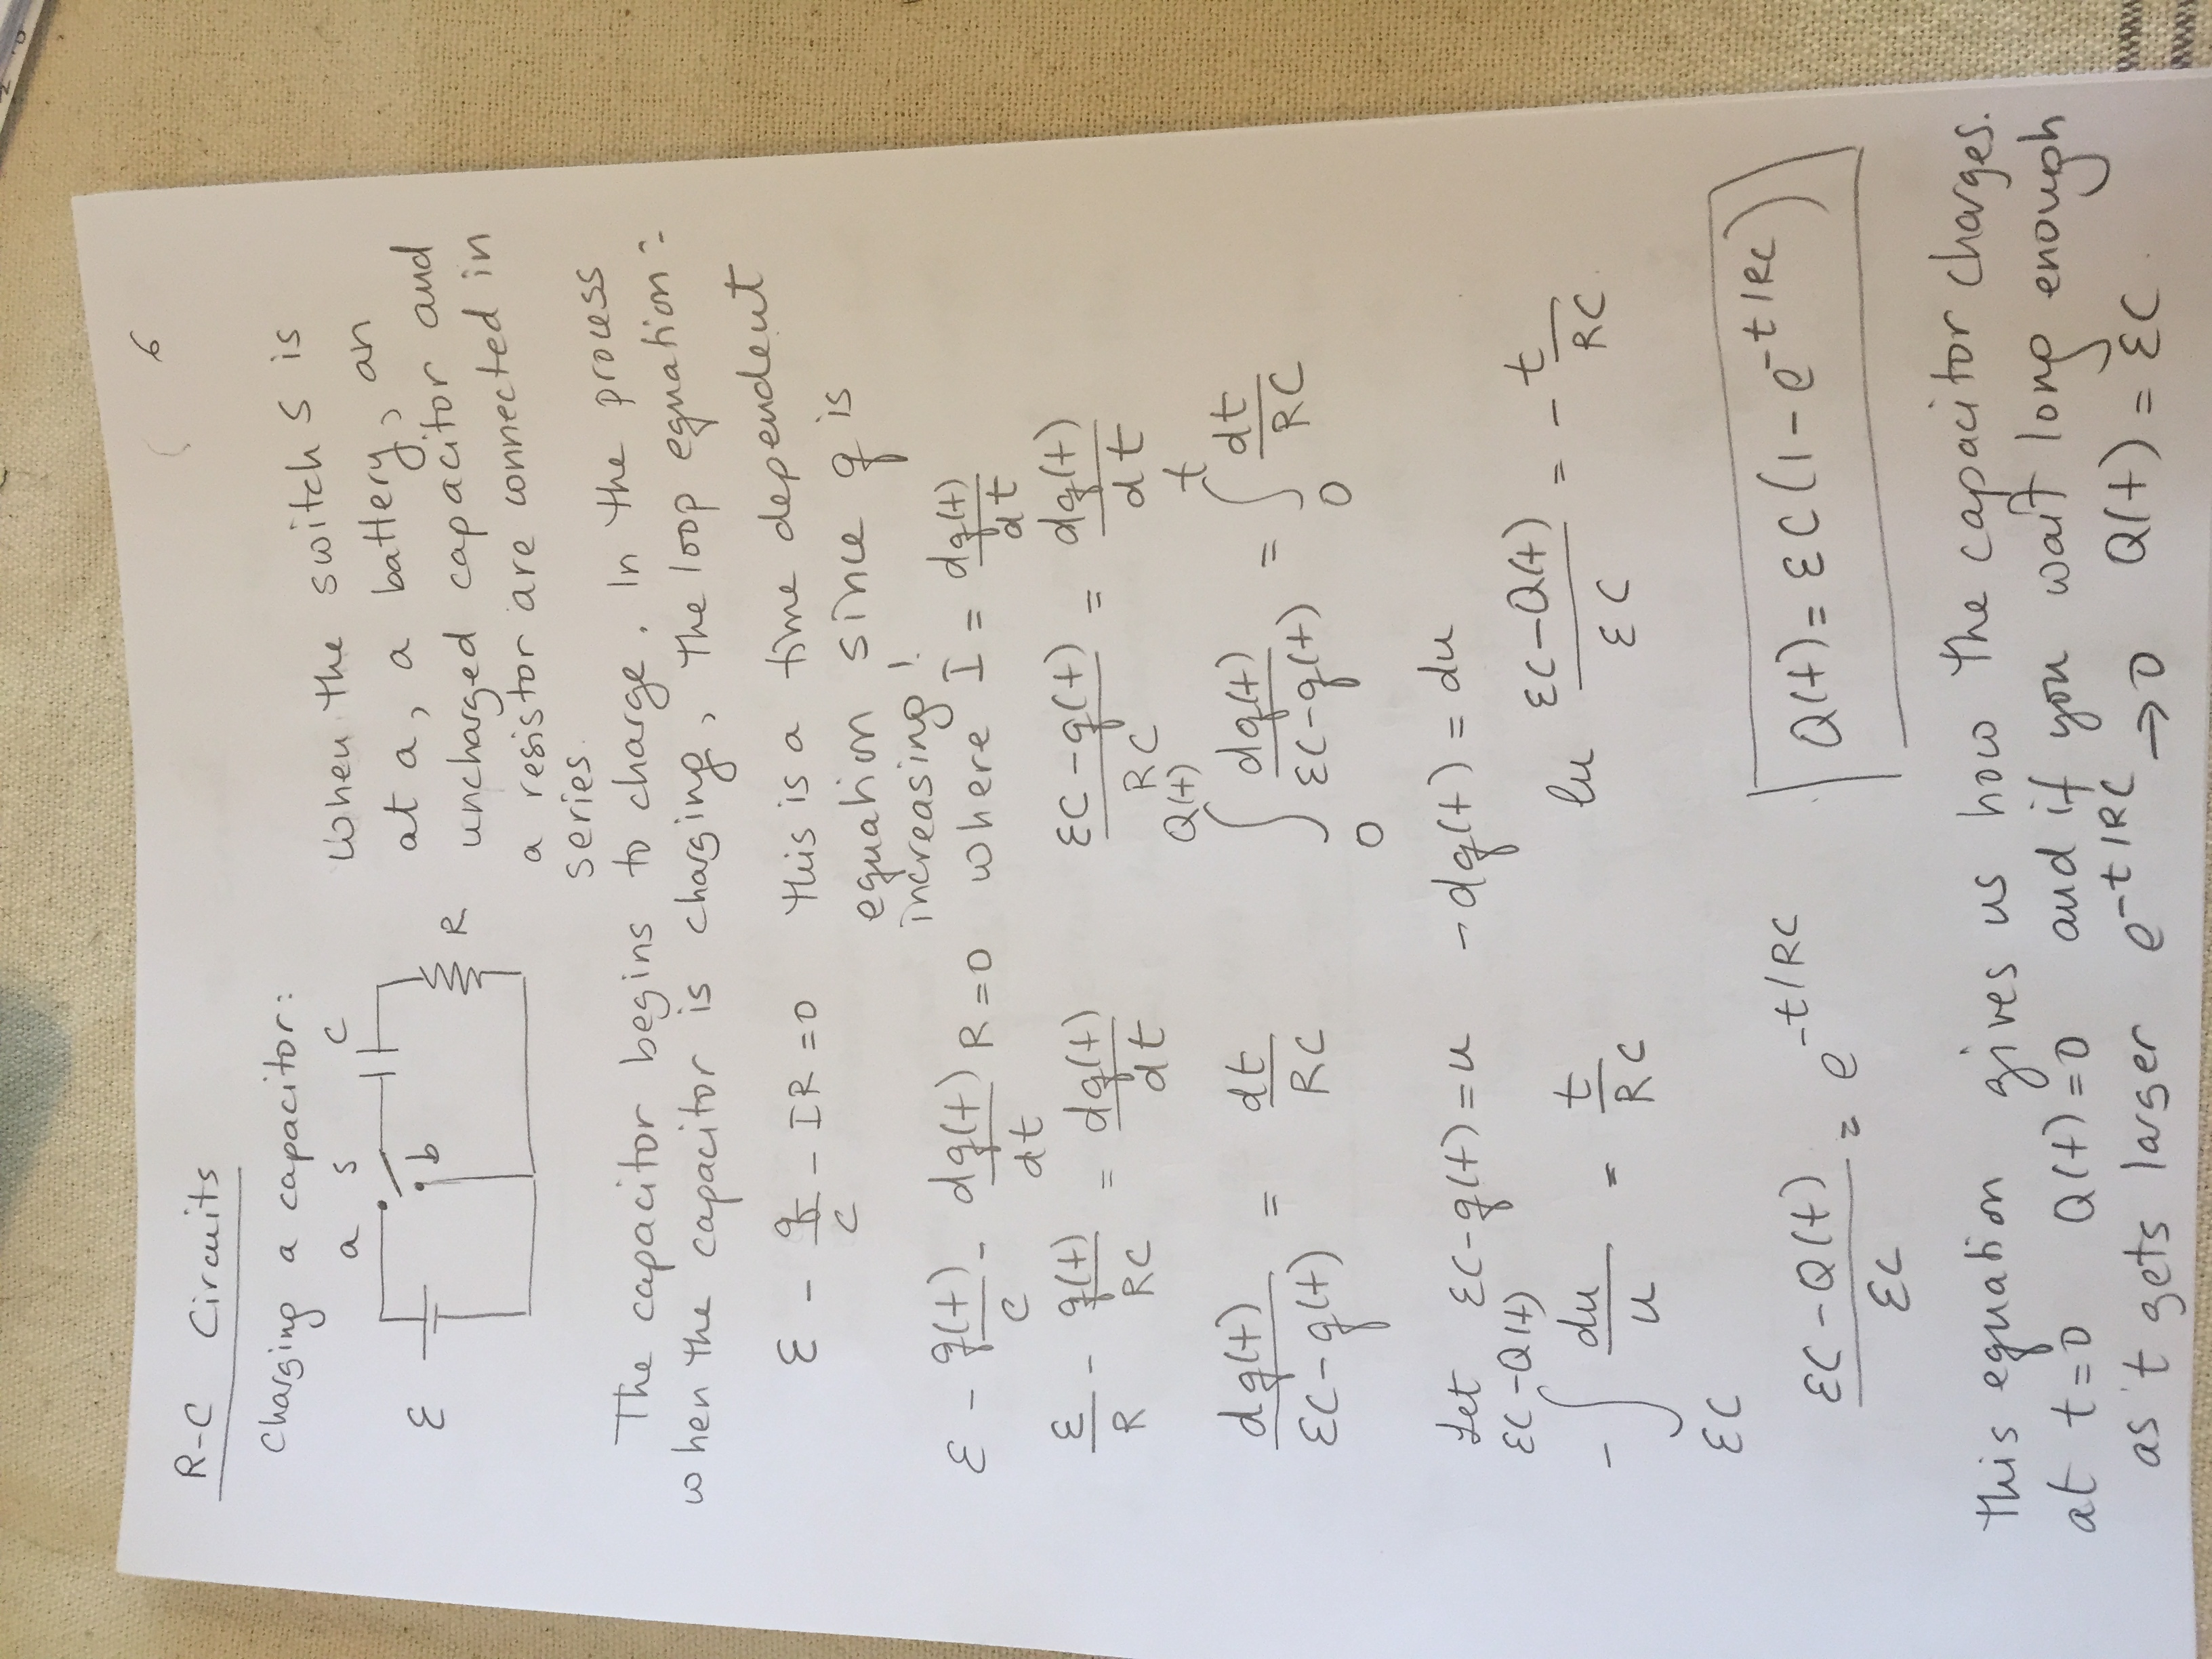 6
R-C Circuits
Charging a capacitor:
a S C
ℰ b R
When the switch S is
at a, a battery, an
uncharged capacitor and
a resistor are connected in
series.
The capacitor begins to charge. In the process
when the capacitor is charging, the loop equation:
ℰ - q/C - IR = 0 This is a time dependent
equation since q is
increasing!
ℰ - q(t)/C - dq(t)/dt R = 0 where I = dq(t)/dt
ℰ/R - q(t)/RC = dq(t)/dt (ℰC - q(t))/RC = dq(t)/dt
dq(t)/(ℰC - q(t)) = dt/RC ∫₀^Q(t) dq(t)/(ℰC - q(t)) = ∫₀^t dt/RC
Let ℰC - q(t) = u - dq(t) = du
- ∫_ℰC^(ℰC - Q(t)) du/u = t/RC ln (ℰC - Q(t))/ℰC = - t/RC.
(ℰC - Q(t))/ℰC = e^(-t/RC) Q(t) = ℰC (1 - e^(-t/RC))
This equation gives us how the capacitor charges.
at t = 0 Q(t) = 0 and if you wait long enough
as t gets larger e^(-t/RC) → 0 Q(t) = ℰC.